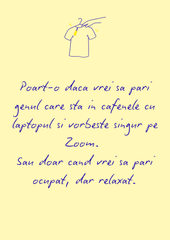 Poart-o daca vrei sa pari
genul care sta in cafenele cu
laptopul si vorbeste singur pe
Zoom.
Sau doar cand vrei sa pari
ocupat, dar relaxat.